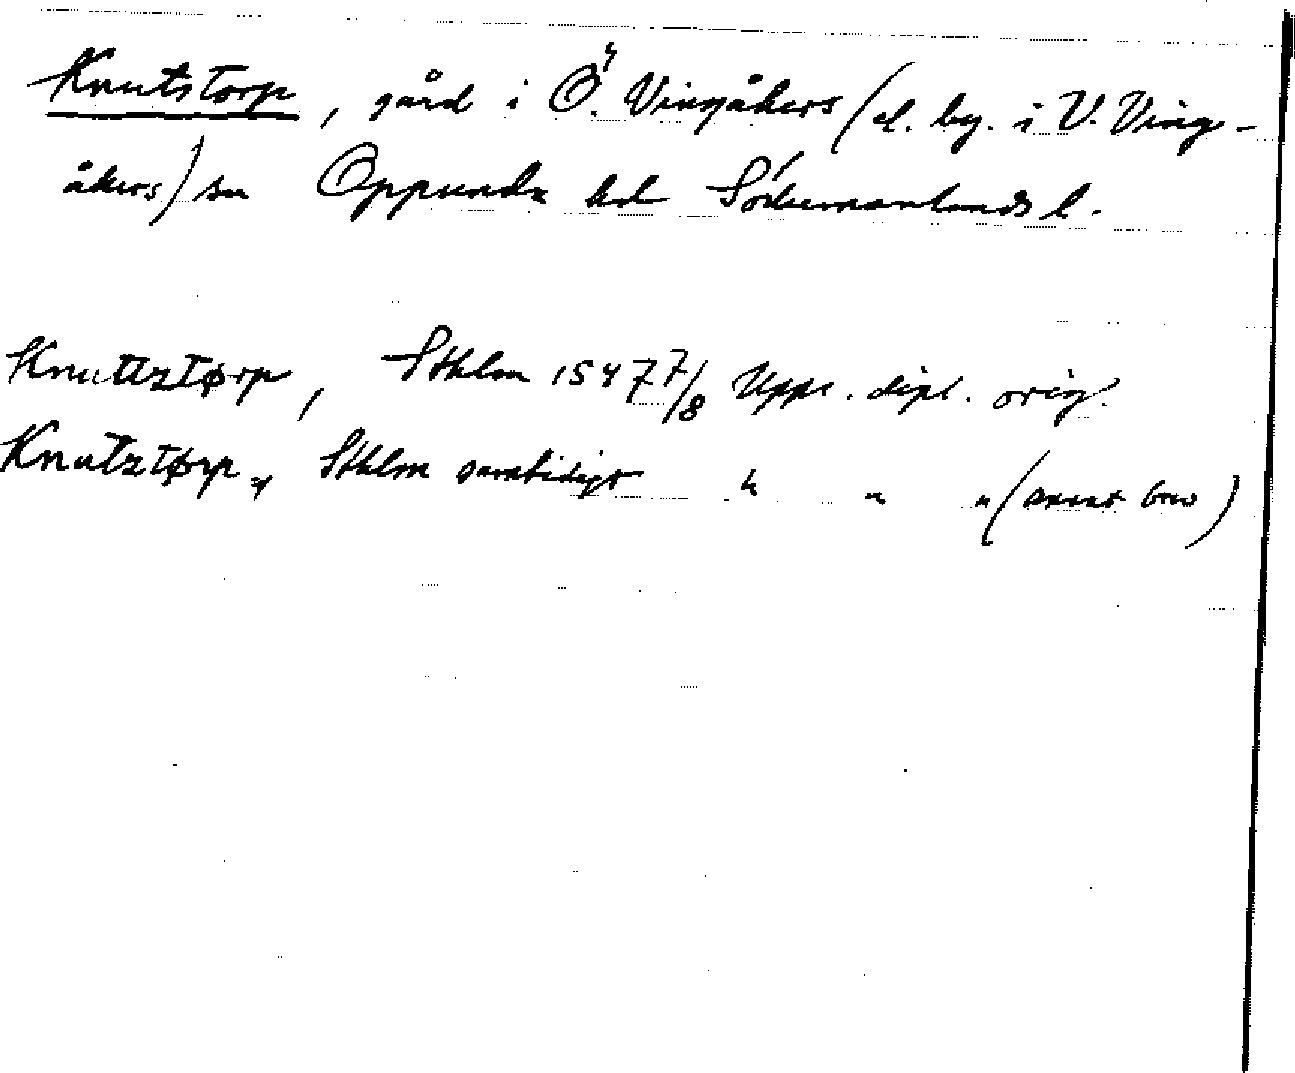 Knutstorp, gård i Ö. Vingåkers (el. by. i V. Ving-
åkers) sn Oppunda hd Södermanlands l.
Knuttztørp, Sthlm 1547 7/8 Upps. dipl. orig.
Knutztørp, Sthlm samtidigt " " " (annat brev)